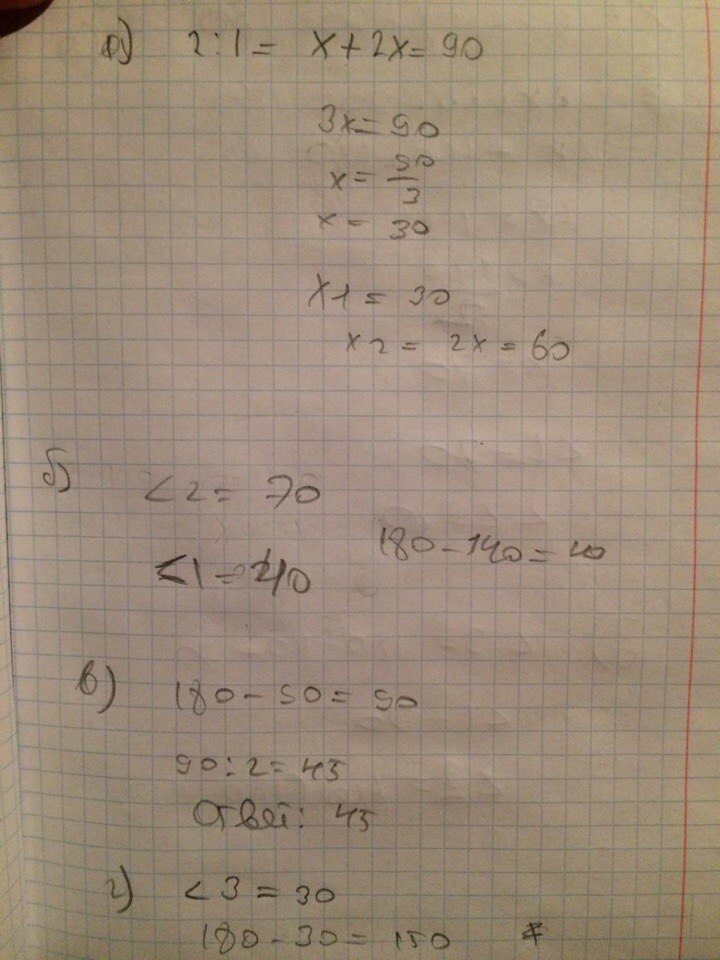 а) 2:1 = x+2x= 90
3x= 90
x= 90/3
x= 30
x1= 30
x2= 2x= 60
б) <2= 70
180-140=40
<1=40
в) 180-90= 90
90:2=45
Ответ: 45
г) <3=30
180-30=150